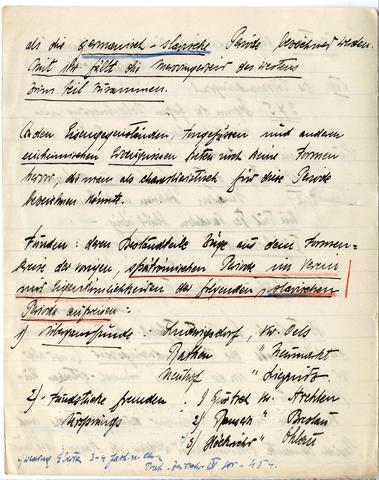 als die germanisch-slavische Periode bezeichnet werden.
Mit ihr fällt die Merowingerzeit des Westens
zum Teil zusammen.
den Eisengegenständen, Tongefässen und anderen
einheimischen Erzeugnissen treten noch keine Formen
hervor, die man als charakteristisch für diese Periode
bezeichnen könnte.
Funden: deren Bestandteile Züge aus dem Formen-
kreise der vorigen, spätrömischen Periode im Verein
mit Eigentümlichkeiten der folgenden slavischen
Periode aufweisen:
1) : Ludwigsdorf, Kr. Oels
Rathen " Neumarkt
Neuhof " Liegnitz
2) Fundstücke fremden 1) Kr. Strehlen
Ursprungs 2) Ransern " Breslau
3) " Ohlau
3-4